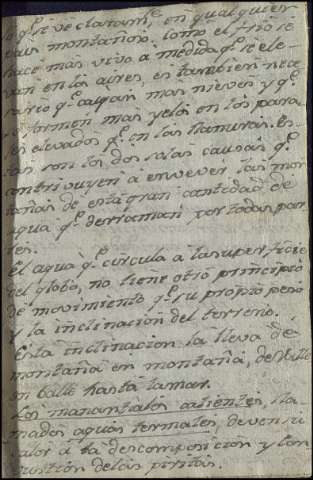 lo q.e se ve claram.te, en qualquier
pais montañoso. Como el frio se
hace mas vivo à medida q.e se ele-
van en los aires, es tambien nece
sario q.e caigan mas nieves y q.e
se formen mas yelos en los para
jes elevados q.e en las llanuras. Es
tas son las dos solas causas q.e
contrivuyen à envever las mon
tañas de esta gran cantidad de
agua q.e derraman por todas par
tes.
El agua q.e circula a la superficie
del globo, no tiene otro principio
de movimiento q.e su propio peso
y la inclinacion del terreno.
Esta inclinacion la lleva de
montaña en montaña, de Valle
en balle hasta la mar.
Los manantiales calientes, lla
mados aguas termales, deven su
calor à la descomposicion y com
bustion de las piritas.